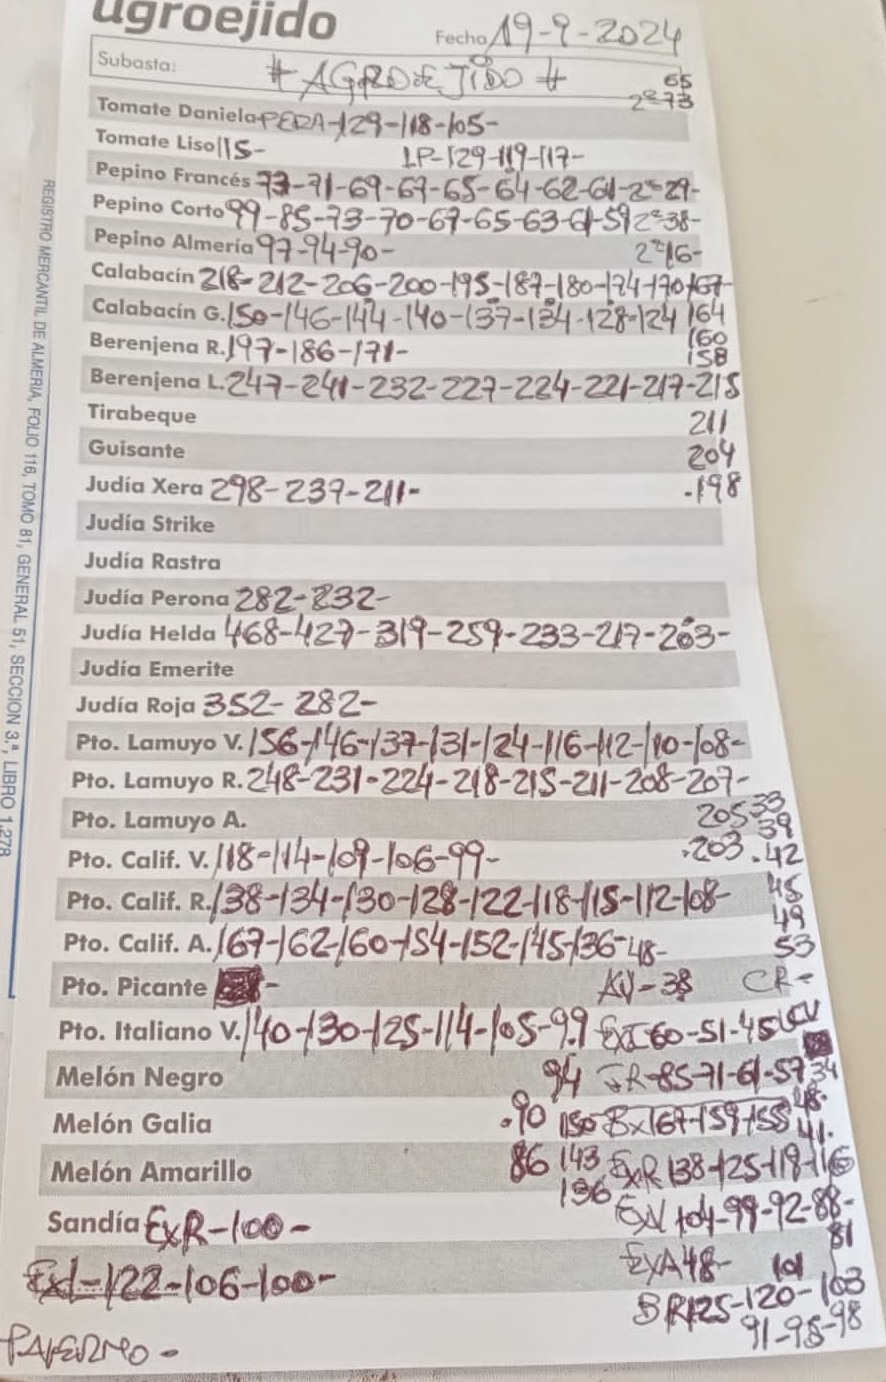 agroejido
Fecha 19-9-2024
Subasta: # AGROEJIDO # 65
2ª73
Tomate Daniela PERA-129-118-105-
Tomate Liso 115- LP-129-119-117-
Pepino Francés 73-71-69-67-65-64-62-61-2ª29-
Pepino Corto 99-85-73-70-67-65-63-61-59 2ª38-
Pepino Almería 97-94-90- 2ª16-
Calabacín 218-212-206-200-195-187-180-174-170-167-
Calabacín G. 150-146-144-140-137-134-128-124 164
160
Berenjena R. 197-186-171- 158
Berenjena L. 247-241-232-227-224-221-217-215
Tirabeque 211
Guisante 204
Judía Xera 298-237-211- .198
Judía Strike
Judía Rastra
Judía Perona 282-232-
Judía Helda 468-427-319-259-233-217-203-
Judía Emerite
Judía Roja 352-282-
Pto. Lamuyo V. 156-146-137-131-124-116-112-110-108-
Pto. Lamuyo R. 248-231-224-218-215-211-208-207-
Pto. Lamuyo A. 205 33
39
Pto. Calif. V. 118-114-109-106-99- .203 .42
Pto. Calif. R. 138-134-130-128-122-118-115-112-108- 45
49
Pto. Calif. A. 167-162-160-154-152-145-136-48- 53
Pto. Picante - AV-38 CR-
Pto. Italiano V. 140-130-125-114-105-99 ExI 60-51-45 LCV
Melón Negro 94 JR-85-71-61-57 34
48-
Melón Galia .90 150 Bx 167-159-155 41.
Melón Amarillo 86 143 ExR 138-125-118-116
136
Sandía ExR-100- ExV 104-99-92-88-
81
ExI-122-106-100- ExA 48- 101
BR 125-120-103
91-95-98
PALERMO-
REGISTRO MERCANTIL DE ALMERIA, FOLIO 116, TOMO 81, GENERAL 51, SECCION 3.ª, LIBRO 1.278